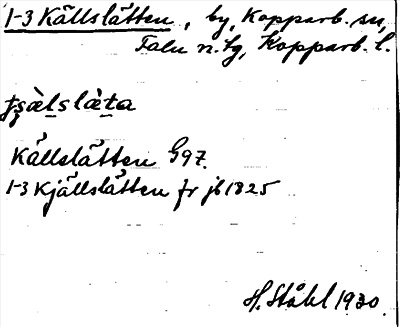 1-3 Källslätten, by, Kopparb. sn,
Falu n. tg, Kopparb. l.
ʈʂàlslàta
Källslätten G97.
1-3 Kjällslätten fr jb 1825
H. Ståhl 1930.